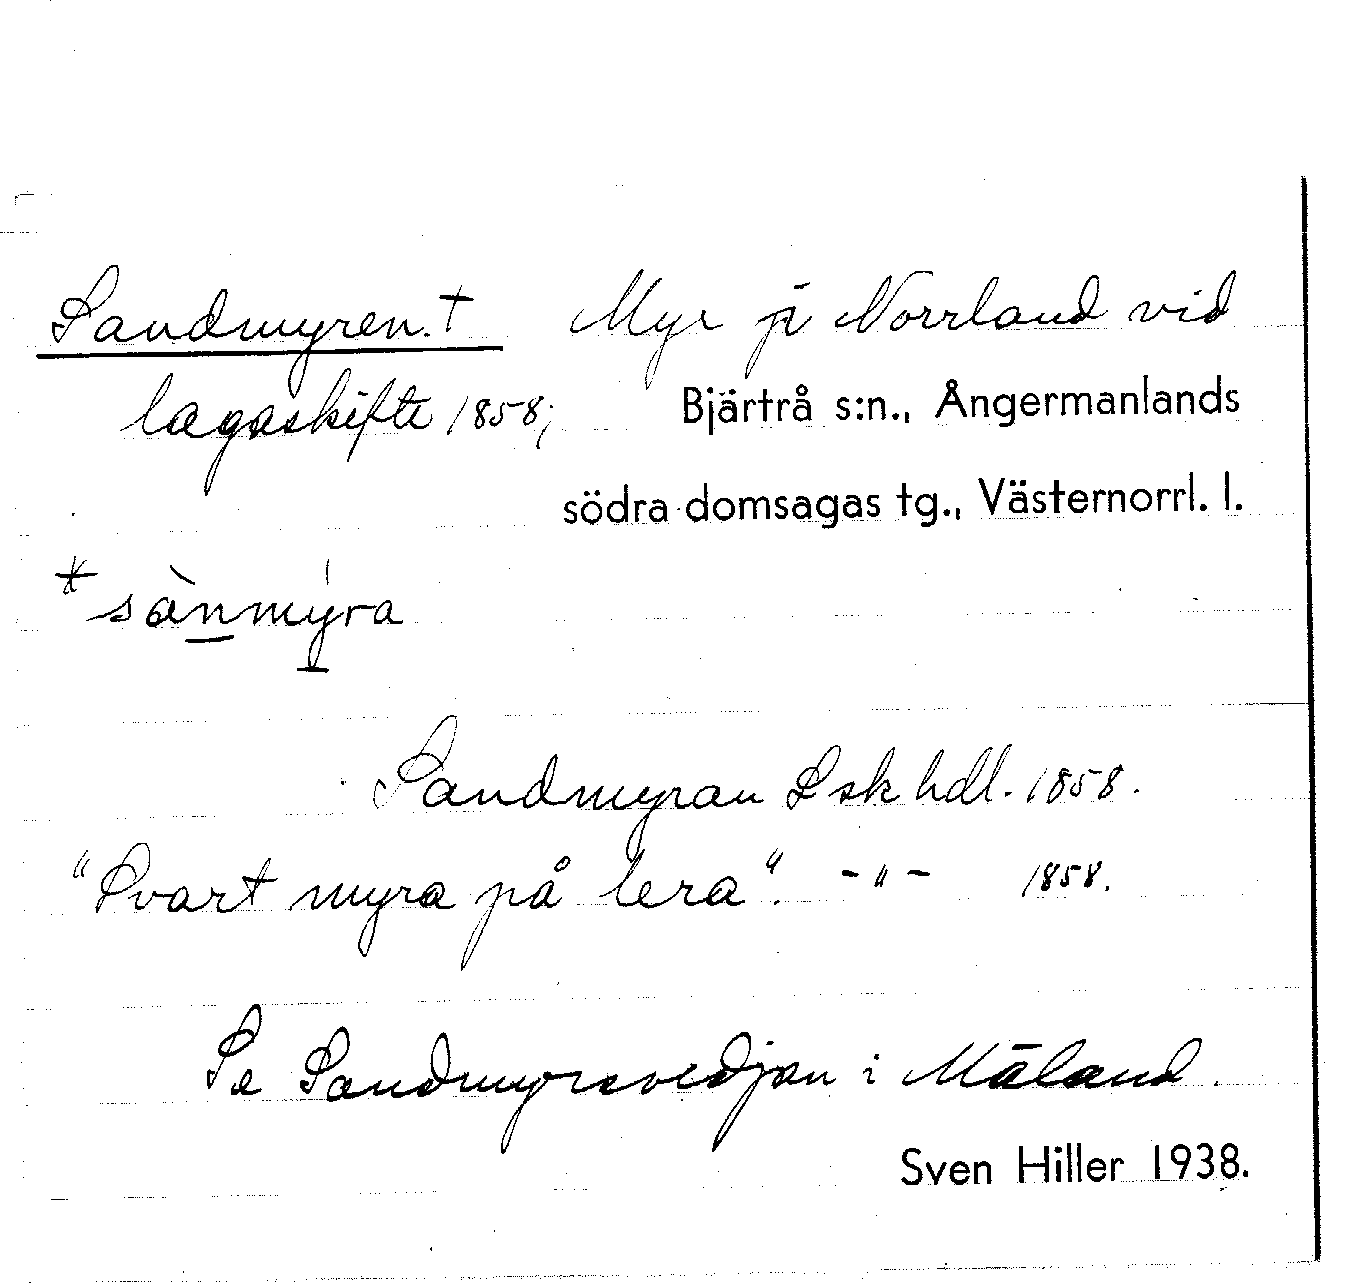 Sandmyren. † Myr på Norrland vid
lagaskifte 1858; Bjärtrå s:n., Ångermanlands
södra domsagas tg., Västernorrl. l.
* sànmýra
Sandmyran Lsk hdl. 1858.
"Svart myra på lera". -"- 1858.
Se Sandmyrsvedjan i Mäland.
Sven Hiller 1938.